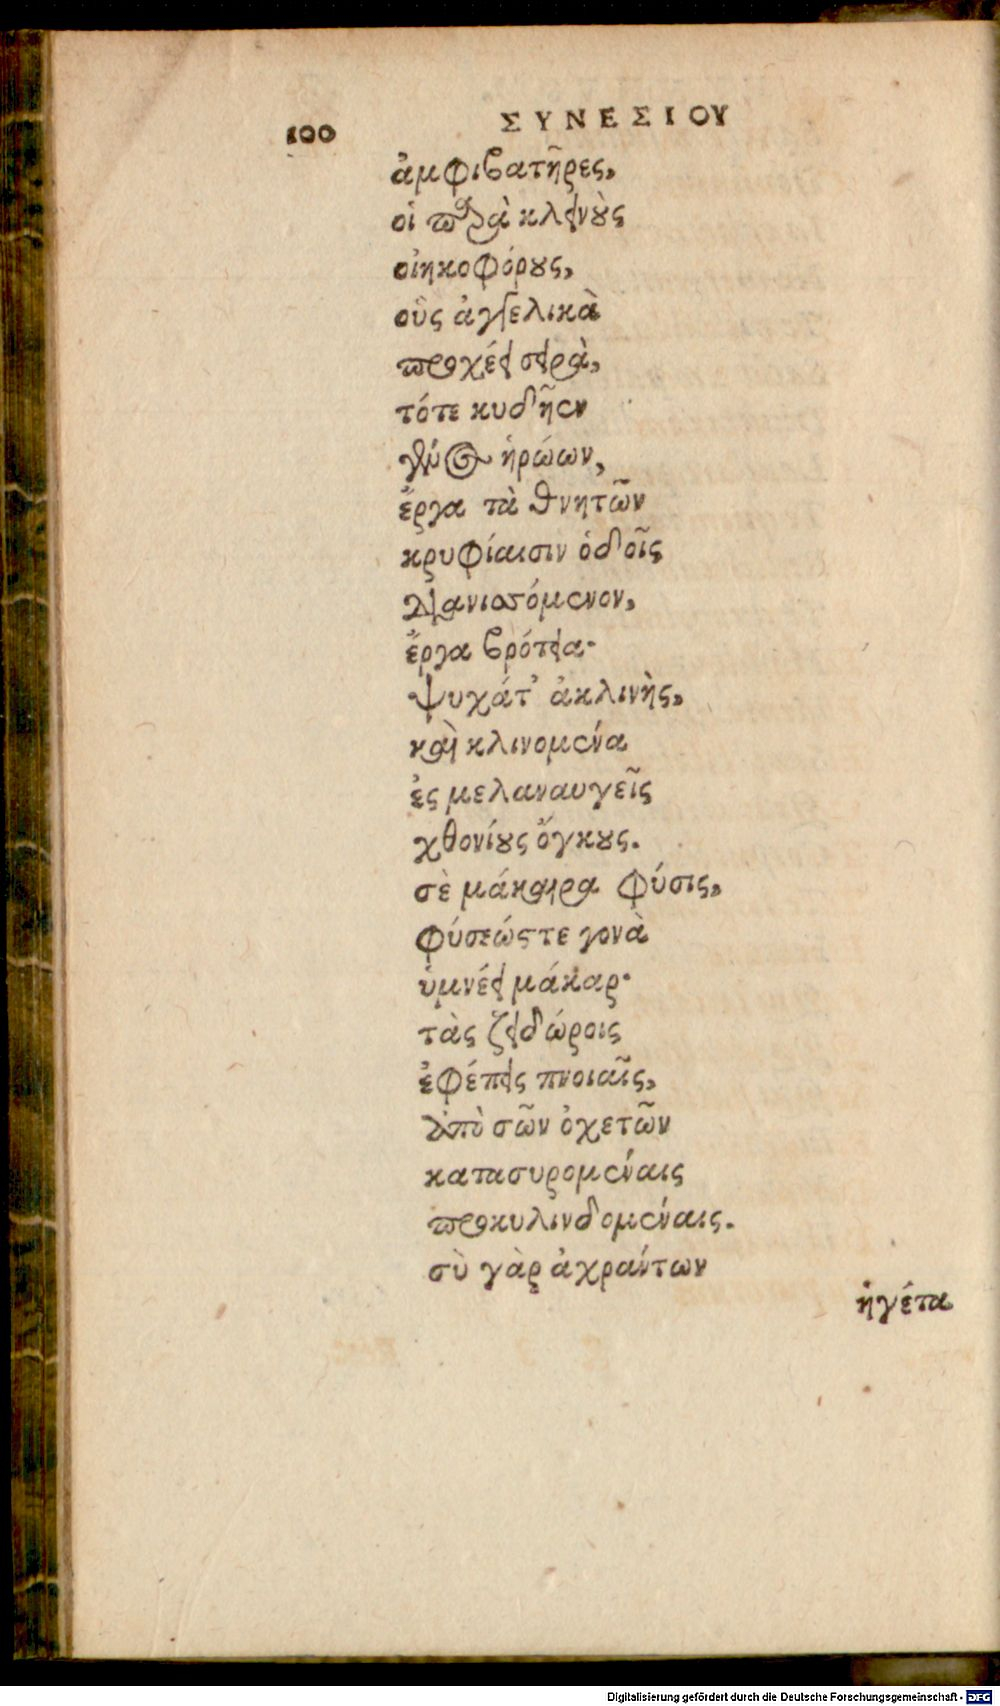 100 ΣΥΝΕΣΙΟΥ
ἀμφιβατῆρες,
οἱ παρὰ κλεινοὺς
οἰηκοφόρους,
οὓς ἀγγελικὰ
προχέει σειρὰ,
τότε κυδῆεν
γένος ἡρώων,
ἔργα τὰ θνητῶν
κρυφίαισιν ὁδοῖς
διανισσόμενον,
ἔργα βρότεια·
ψυχάτ' ἀκλινὴς,
καὶ κλινομένα
ἐς μελαναυγεῖς
χθονίους ὄγκους.
σὲ μάκαιρα φύσις,
φύσεώς τε γονὰ
ὑμνέει μάκαρ·
τὰς ζειδώροις
ἐφέπεις πνοιαῖς,
ἀπὸ σῶν ὀχετῶν
κατασυρομέναις
προκυλινδομέναις.
σὺ γὰρ ἀχράντων
ἡγέτα
Digitalisierung gefördert durch die Deutsche Forschungsgemeinschaft - DFG